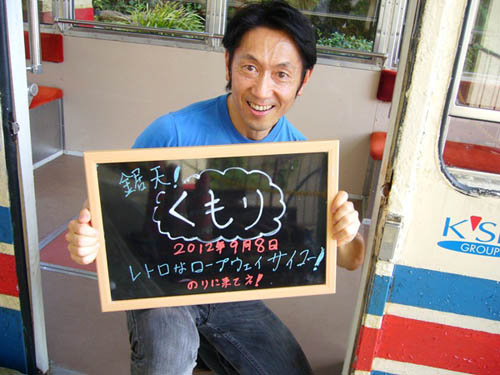 鋸天!
くもり
2012年9月8日
レトロなロープウェイサイコー!
のりに来てネ!
K'S
GROUP